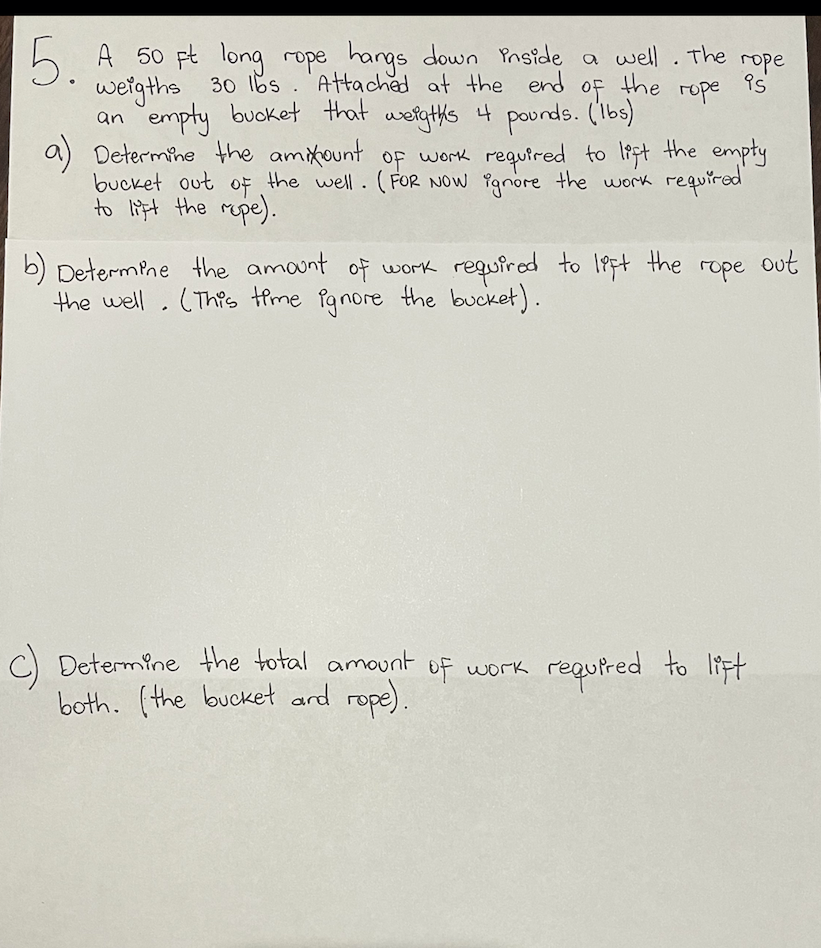 5. A 50 ft long rope hangs down inside a well. The rope
weigths 30 lbs. Attached at the end of the rope is
an empty bucket that weigths 4 pounds. (lbs)
a) Determine the amount of work required to lift the empty
bucket out of the well. (FOR NOW ignore the work required
to lift the rope).
b) Determine the amount of work required to lift the rope out
the well. (This time ignore the bucket).
c) Determine the total amount of work required to lift
both. (the bucket and rope).